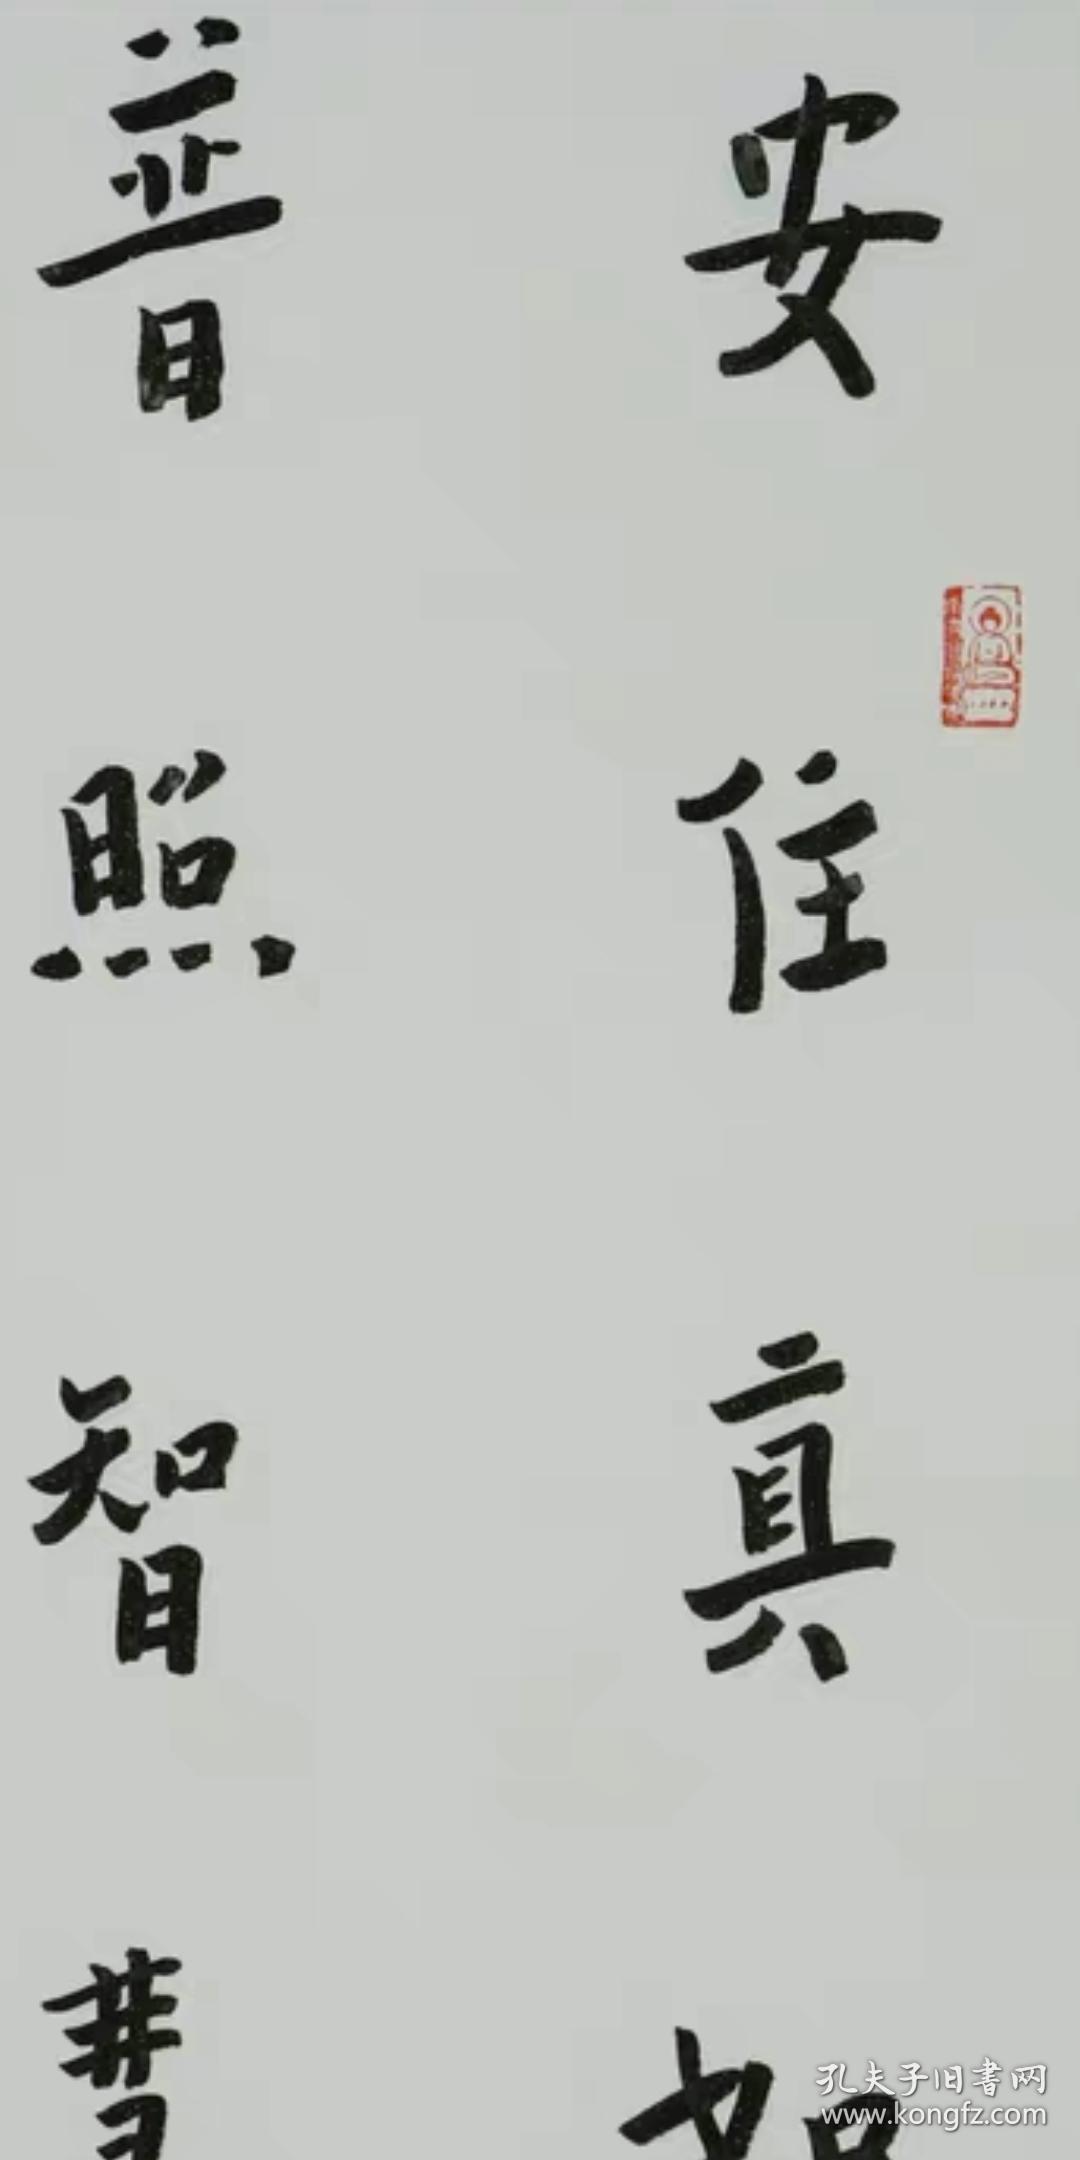 安住真如
普照智慧
孔夫子旧書网
www.kongfz.com